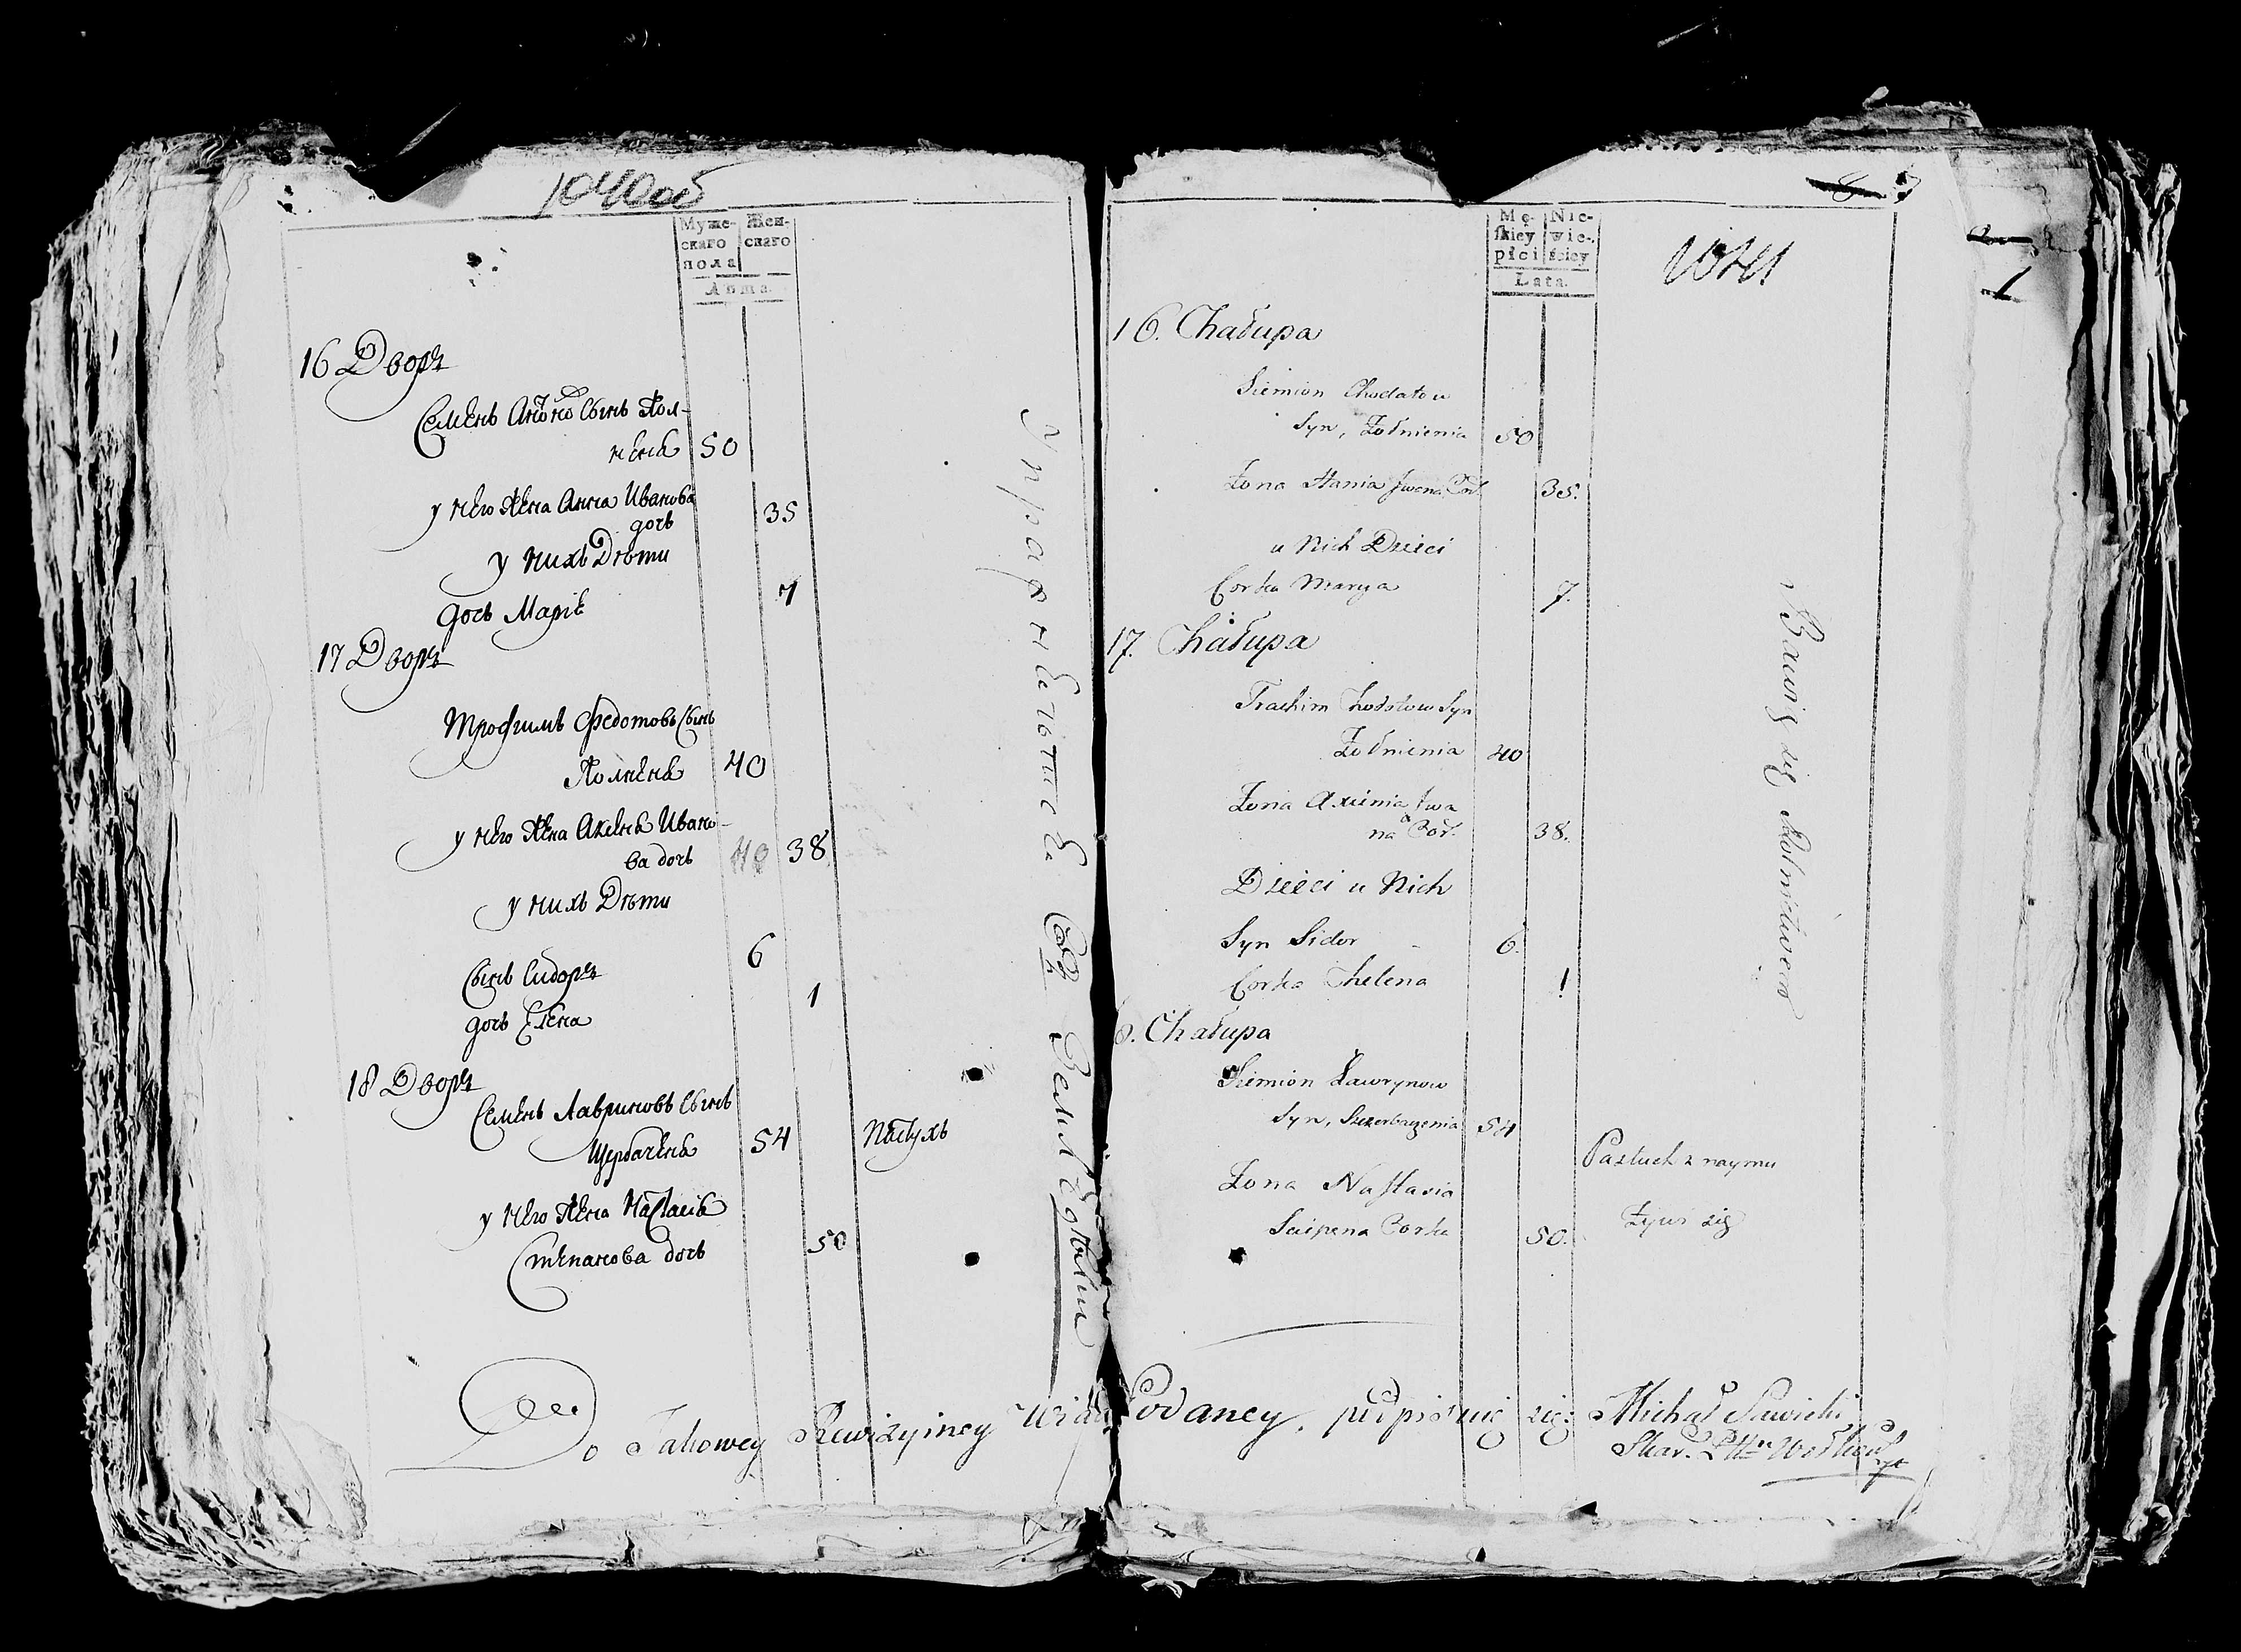 1040об
Муже-
скаго
пола
Жен-
скаго
Лѣта.
16 Дворъ
Семенъ Сынъ Жол-
неня 50
у него жена Анна Иванова
дочь 35
у нихъ Дѣти
дочь Марія 7
17 Дворъ
Трофимъ Федотовъ Сынъ
Жолненя 40
у него жена Аксеня Ивано-
ва дочь 40 38
у нихъ Дѣти
Сынъ Сидоръ 6
дочь Елена 1
18 Дворъ
Семенъ Лавриновъ Сынъ
Щербаченя 54 Пастухъ
у него жена Настасія
Степанова дочь 50
Упражнѣетьце
Земледѣліи
Mę-
skiey
płci
Nie-
wie-
ściey
Lata.
1041
16. Chałupa
Siemion Chodatow
Syn, Żołnienia 50
Żona Hania Jwana Cor. 35.
u Nich Dzieci
Corka Marya 7.
17. Chałupa
Trachim Syn
Żołnienia 40
Żona Axienia Jwa
na Cor. 38.
Dzieci u Nich
Syn Sidor 6.
Corka Chelena 1
8. Chałupa
Siemion Ławrynow
Syn, Szczerbaczenia 54
Pastuch z naymu
Żona Nastazia
Sciepana Corka 50.
Żywi się
Bawią się Rolnictwem
Do Takowey Rewizyiney podaney, podpisuię się Michał Sawicki